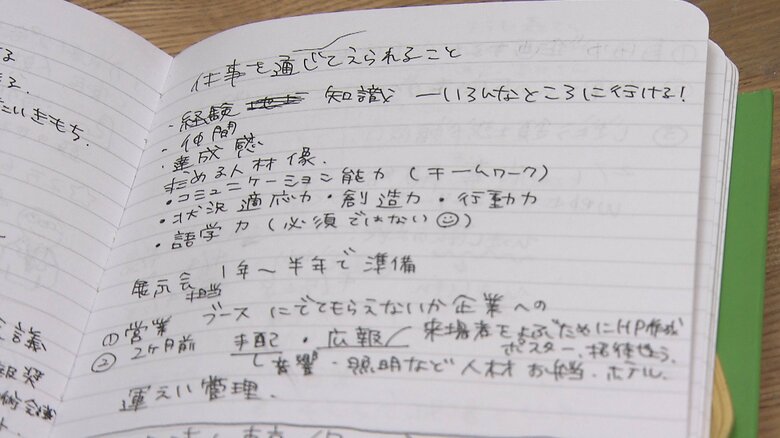 る
る.
たいきもち.
仕事を通じてえられること
・経験 知識 —いろんなところに行ける!
・仲間
・達成感
求める人材像.
・コミュニケーション能力(チームワーク)
・状況適応力・創造力・行動力
・語学力(必須ではない☺)
展示会担当 1年〜半年で準備
① 営業 ブースにでてもらえないか企業への
② 2ヶ月前 手配・広報 来場者をよぶためにHP作成
ポスター、招待じょう.
音響・照明など 人材 お弁当.ホテル.
運えい管理.
会議
報奨